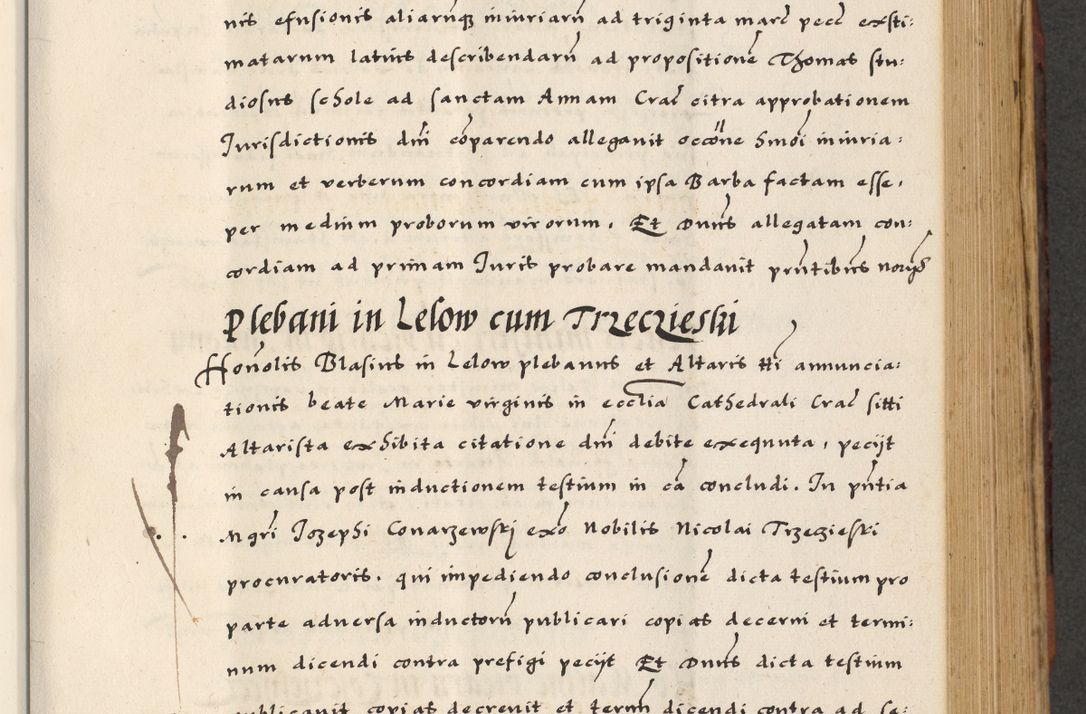 nis efusionis aliarūqʒ iniuriarū ad triginta marc̄ pecc̄ exsti:
matarum latius describendarū ad propositionē Thomas stu:
diosus schole ad sanctam Annam Crac̄ citra approbationem
Jurisdictionis dn̄i cōparendo allegauit occōne hm̄oi iniuria:
rum et verberum concordiam cum ipsa Barba factam esse,
per medium proborum virorum. Et Dnūs allegatam con:
cordiam ad primam Juris probare mandauit pn̄tibus
Plebani in Lelow cum Trzeczieski
Honōlis Blasius in Lelow plebanus et Altaris tti annuncia:
tionis beate Marie virginis in ecclīa Cathedrali Crac̄ sitti
Altarista exhibita citatione dn̄i debite exequuta, pecijt
in causa post inductionem testium in cā concludi. In pn̄tia
Mgr̄i Jozephi Conarzewskj exo Nobilis Nicolai Trzeczieski
procuratoris. qui impediendo conclusionē dicta testium pro
parte aduersa inductorū publicari copias decerni et termi:
num dicendi contra prefigi pecijt Et Dnūs dicta testium
publicauit copias decreuit et termn̄ dicendi contra ad se: